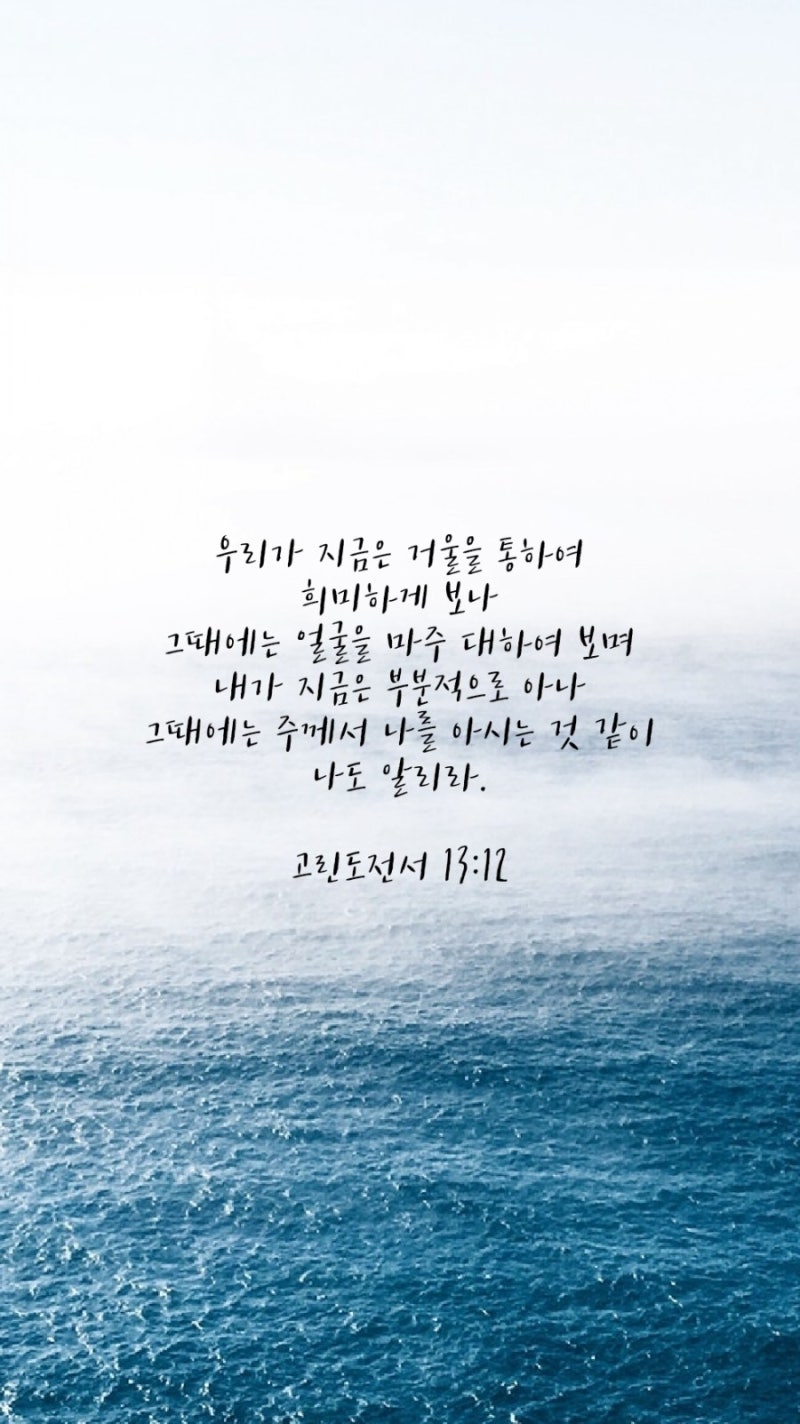 우리가 지금은 거울을 통하여
희미하게 보나
그때에는 얼굴을 마주 대하여 보며
내가 지금은 부분적으로 아나
그때에는 주께서 나를 아시는 것 같이
나도 알리라.
고린도전서 13:12